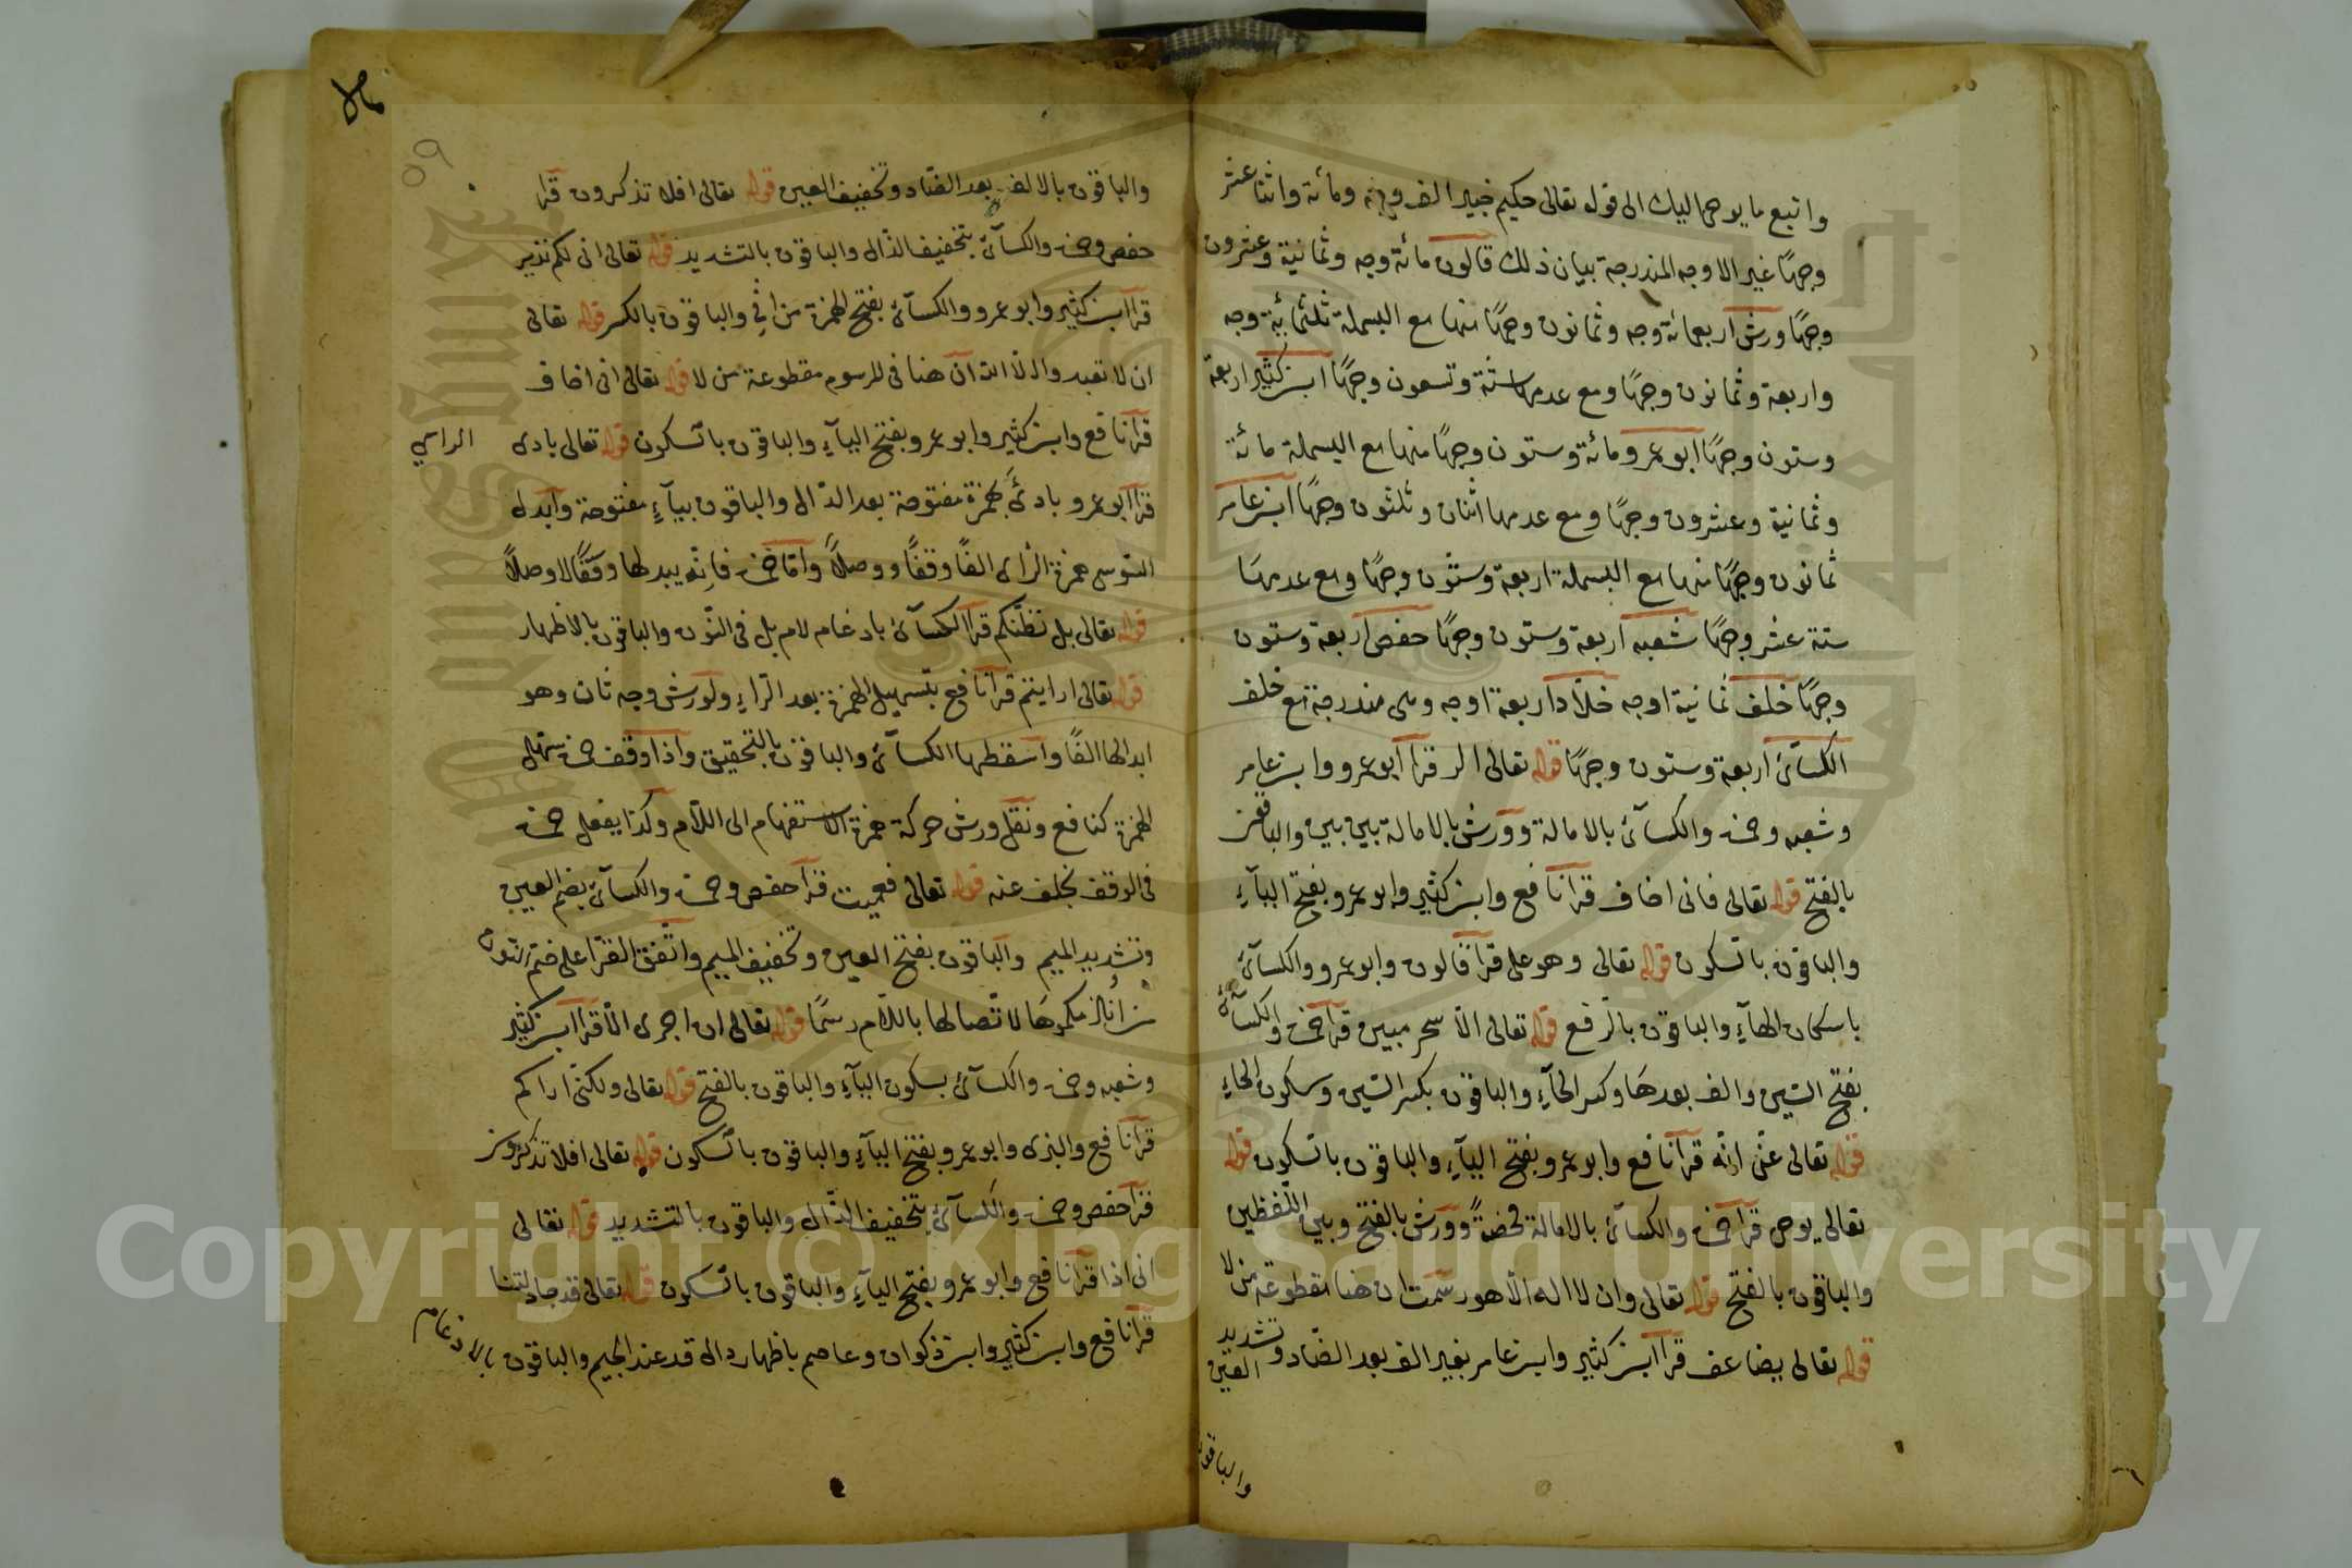 واتبع ما يوحى اليك الى قوله تعالى حكيم خبير الف وجه ومائة واثنا عشر
وجهًا غير الاوجه المندرجة بيان ذلك قالون مائة وجه وثمانية وعشرون
وجهًا ورش اربعمائة وجه وثمانون وجهًا منها مع البسملة ثلثمائة وجه
واربعة وثمانون وجهًا ومع عدمها ستة وتسعون وجهًا ابن كثير اربعة
وستون وجهًا ابو عمرو مائة وستون وجهًا منها مع البسملة مائة
وثمانية وعشرون وجهًا ومع عدمها اثنان وثلثون وجهًا ابن عامر
ثمانون وجهًا منها مع البسملة اربعة وستون وجهًا ومع عدمها
ستة عشر وجهًا شعبه اربعة وستون وجهًا حفص اربعة وستون
وجهًا خلف ثمانية اوجه خلاد اربعة اوجه وهى مندرجة مع خلف
الكسآئ اربعة وستون وجهًا قوله تعالى الر قرا ابو عمرو وابن عامر
وشعبه وحمزة والكسآئ بالامالة وورش بالامالة بين بين والباقون
بالفتح قوله تعالى فانى اخاف قرا نافع وابن كثير وابو عمرو بفتح اليآء
والباقون بالسكون قوله تعالى وهو على قرا قالون وابو عمرو والكسآئ
باسكان الهآء والباقون بالرفع قوله تعالى الا سحر مبين قرا حمزة والكسآئ
بفتح السين والف بعدها وكسر الحآء والباقون بكسر السين وسكون الحاء
قوله تعالى عنى انه قرا نافع وابو عمرو بفتح اليآء والباقون بالسكون قوله
تعالى يوحى قرا حمزة والكسائ بالامالة محضةً وورش بالفتح وبين اللفظين
والباقون بالفتح قوله تعالى وان لا اله الا هو رسمت ان هنا مقطوعة من لا
قوله تعالى يضاعف قرا ابن كثير وابن عامر بغير الف بعد الضاد وتشديد العين
والباقون
والباقون بالالف بعد الضاد وتخفيف العين قوله تعالى افلا تذكرون قرا
حفص وحمزة والكسآئ بتخفيف الذال والباقون بالتشديد قوله تعالى انى لكم نذير
قرا ابن كثير وابو عمرو والكسآئ بفتح الهمزة من انى والباقون بالكسر قوله تعالى
ان لا تعبدوا الا الله ان هنا فى الرسوم مقطوعة من لا قوله تعالى انى اخاف
قرا نافع وابن كثير وابو عمرو بفتح اليآء والباقون بالسكون قوله تعالى بادى الراى
قرا ابو عمرو بادئ بهمزة مفتوحة بعد الدال والباقون بيآء مفتوحة وابدل
السوسى همزة الراى الفًا وقفًا ووصلًا واما حمزة فانه يبدلها وقفًا لا وصلًا
قوله تعالى بل نظنكم قرا الكسآئ بادغام لام بل فى النون والباقون بالاظهار
قوله تعالى ارايتم قرا نافع بتسهيل الهمزة بعد الراء ولورش وجه ثان وهو
ابدالها الفًا واسقطها الكسآئ والباقون بالتحقيق واذا وقف حمزة سهل
الهمزة كنافع ونقل ورش حركة همزة الاستفهام الى اللام وكذا يفعل حمزة
فى الوقف بخلف عنه قوله تعالى فعميت قرا حفص وحمزة والكسآئ بضم العين
وتشديد الميم والباقون بفتح العين وتخفيف الميم واتفق القرا على ضم النون
من انلزمكموها لاتصالها باللام رسمًا قوله تعالى ان اجرى الا قرا ابن كثير
وشعبه وحمزة والكسآئ بسكون اليآء والباقون بالفتح قوله تعالى ولكنى اراكم
قرا نافع والبزى وابو عمرو بفتح اليآء والباقون بالسكون قوله تعالى افلا تذكرون
قرا حفص وحمزة والكسآئ بتخفيف الذال والباقون بالتشديد قوله تعالى
انى اذا قرا نافع وابو عمرو بفتح اليآء والباقون بالسكون قوله تعالى قد جادلتنا
قرا نافع وابن كثير وابن ذكوان وعاصم باظهار دال قد عند الجيم والباقون بالادغام
Copyright © King Saud University